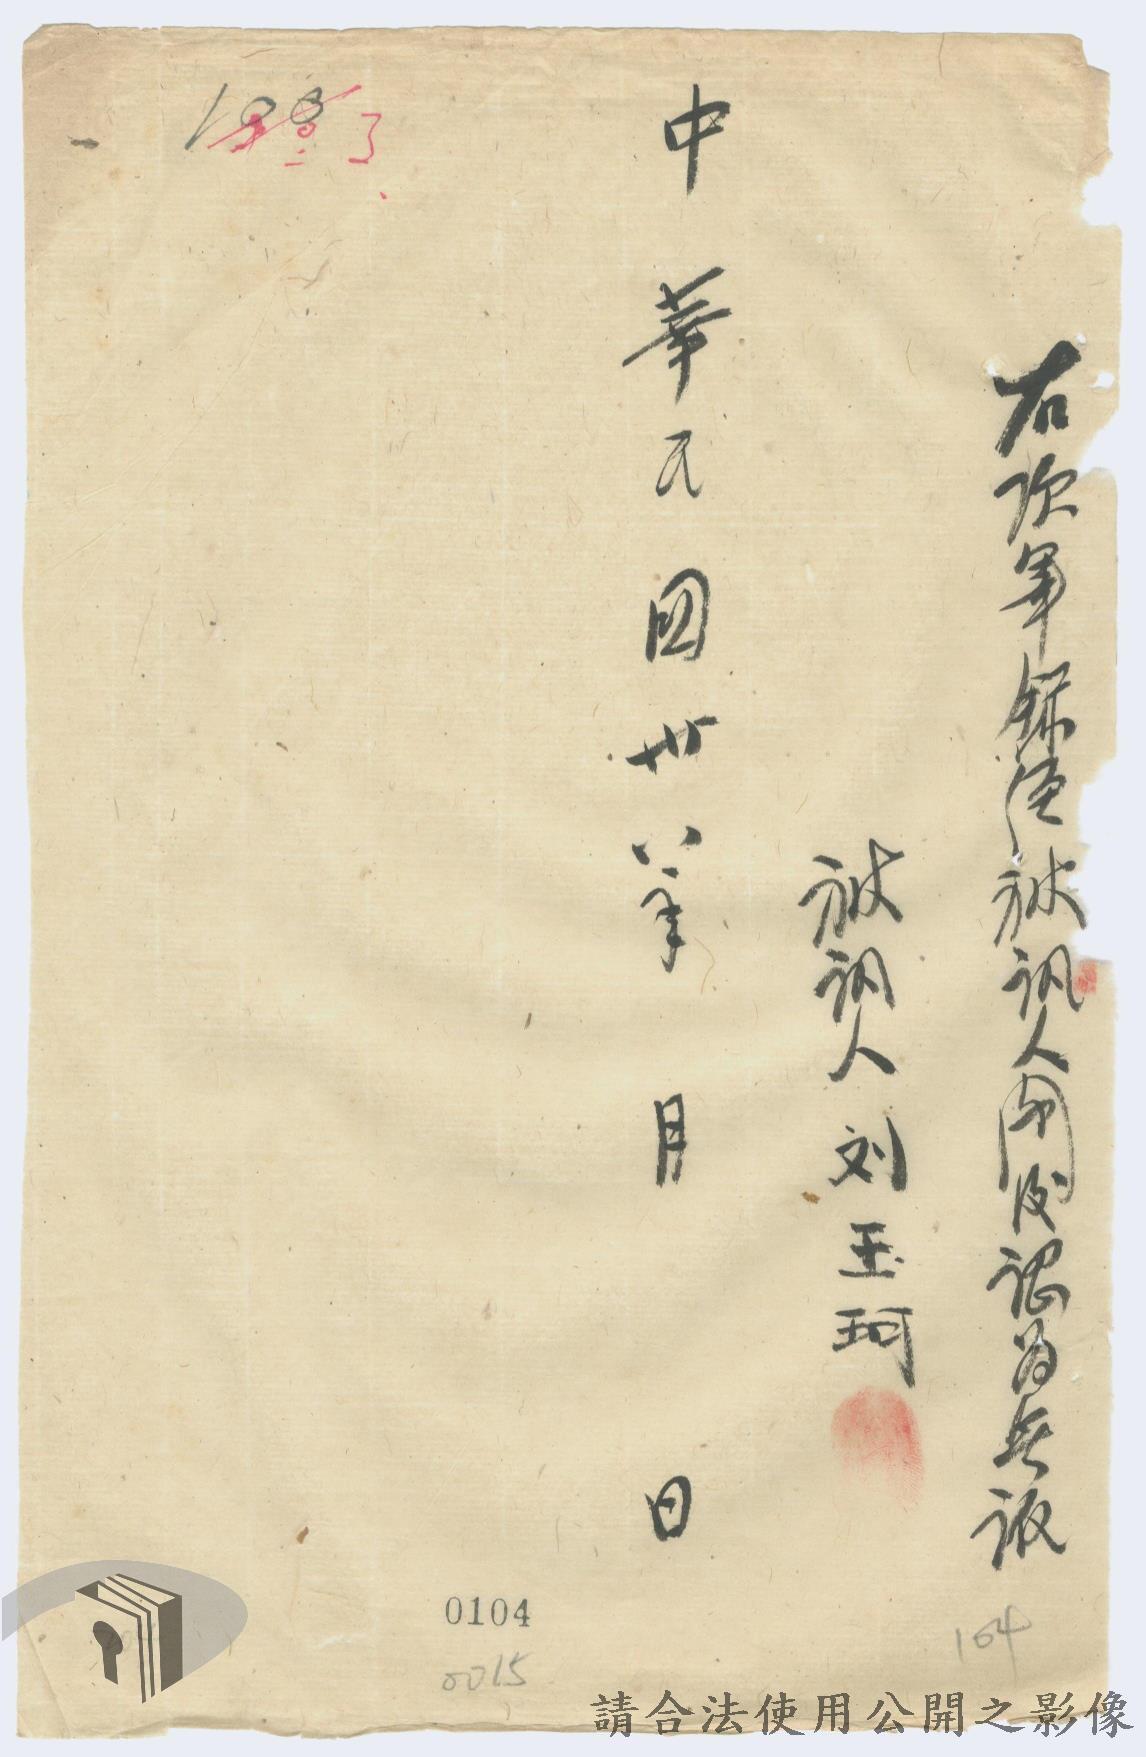 右項筆錄經被訊人閱後認為無訛
被訊人刘玉珂
中華民國卅八年 月 日
104
0104
0015
請合法使用公開之影像